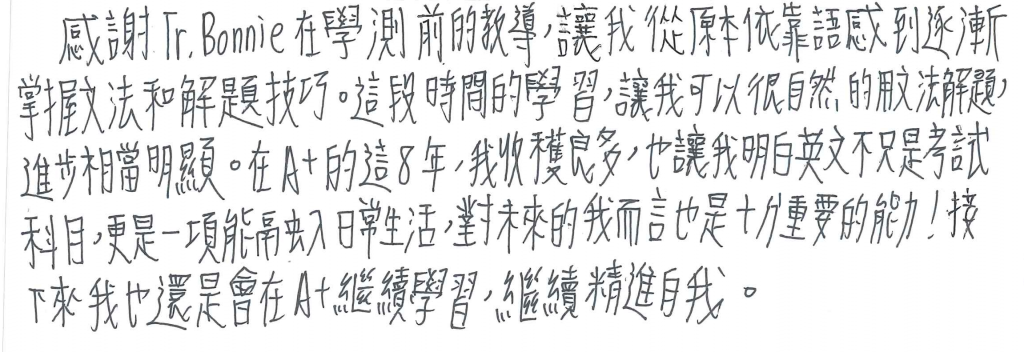 感謝Tr.Bonnie在學測前的教導,讓我從原本依靠語感到逐漸
掌握文法和解題技巧。這段時間的學習,讓我可以很自然的用文法解題,
進步相當明顯。在A+的這8年,我收穫良多,也讓我明白英文不只是考試
科目,更是一項能融入日常生活,對未來的我而言也是十分重要的能力!接
下來我也還是會在A+繼續學習,繼續精進自我。